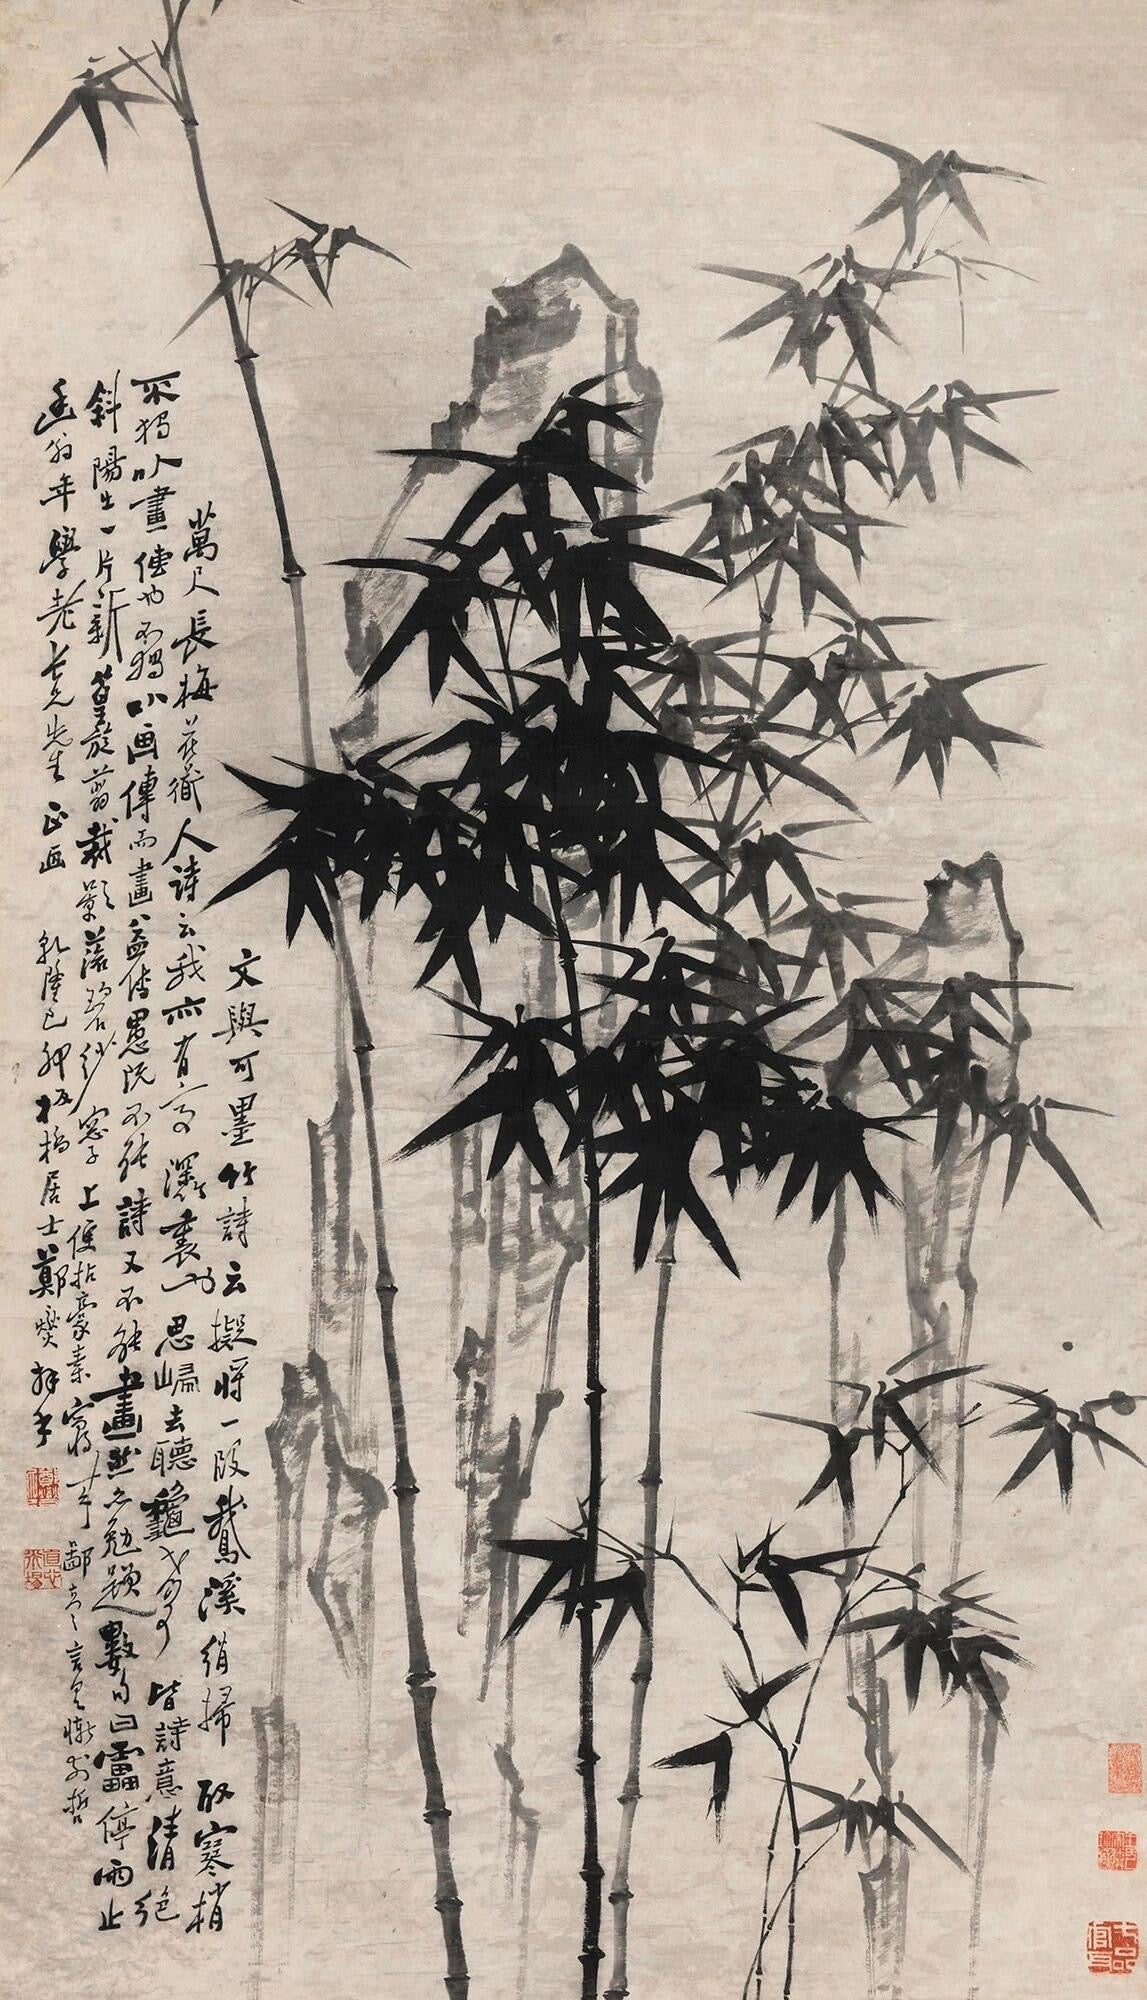 文與可墨竹詩云擬將一段鵝溪絹掃取寒梢
萬尺長梅花道人詩云我亦有亭深竹裏也思歸去聽秋聲皆詩意清絕
不獨以畫傳也不獨以画傳而畫益傳愚既不能詩又不能畫然亦勉題數句曰雷停雨止
斜陽出一片新篁旋剪裁影落碧紗窗子上便拈豪素寫將來鄙言之言慚前哲
年學老長兄先生正画 乾隆 板橋居士鄭燮